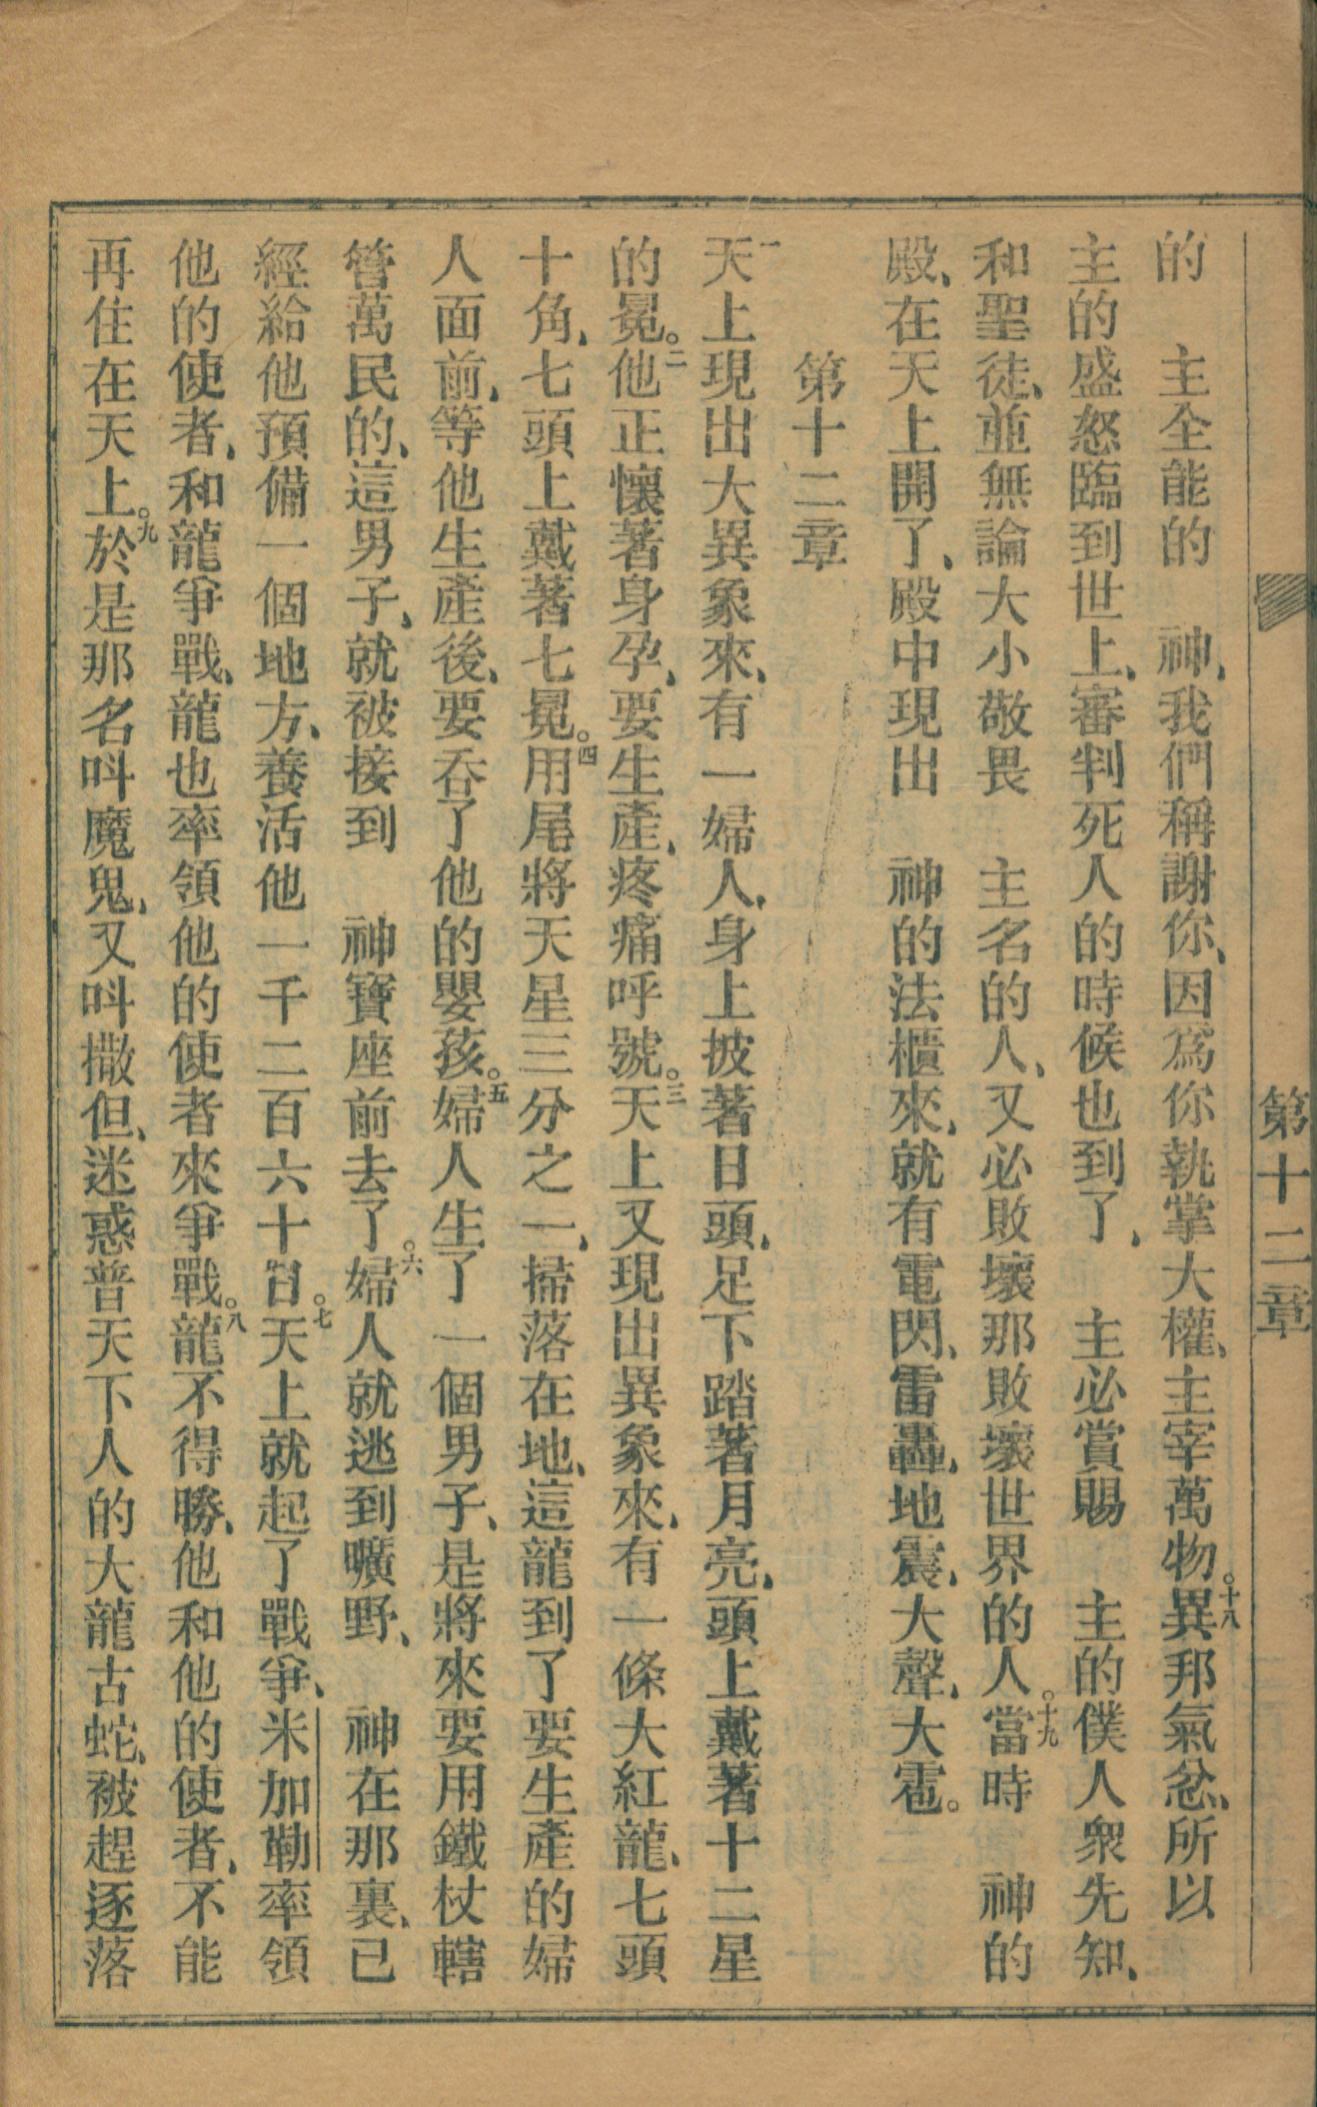 第十二章
的　主全能的　神、我們稱謝你、因爲你執掌大權、主宰萬物。十八異邦氣忿、所以
主的盛怒臨到世上、審判死人的時候也到了、　主必賞賜　主的僕人衆先知、
和聖徒、並無論大小敬畏　主名的人、又必敗壞那敗壞世界的人。十九當時　神的
殿、在天上開了、殿中現出　神的法櫃來、就有電閃、雷轟、地震、大聲、大雹。
第十二章
一天上現出大異象來、有一婦人、身上披著日頭、足下踏著月亮、頭上戴著十二星
的冕。二他正懷著身孕、要生產、疼痛呼號。三天上又現出異象來、有一條大紅龍、七頭
十角、七頭上戴著七冕。四用尾將天星三分之一、掃落在地、這龍到了要生產的婦
人面前、等他生產後、要吞了他的嬰孩。五婦人生了一個男子、是將來要用鐵杖轄
管萬民的、這男子、就被接到　神寶座前去了。六婦人就逃到曠野、　神在那裏、已
經給他預備一個地方、養活他一千二百六十日。七天上就起了戰爭、米加勒率領
他的使者、和龍爭戰、龍也率領他的使者來爭戰。八龍不得勝、他和他的使者、不能
再住在天上。九於是那名呌魔鬼、又呌撒但、迷惑普天下人的大龍古蛇、被趕逐落